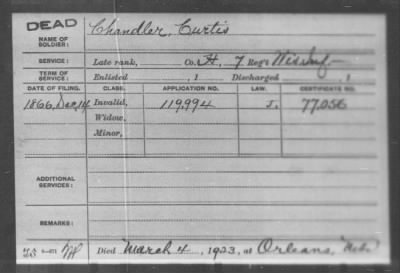 DEAD
NAME OF SOLDIER: Chandler, Curtis
SERVICE: Late rank, Co. H, 7 Reg't Wis Inf
TERM OF SERVICE: Enlisted , 1 Discharged , 1
DATE OF FILING. CLASS. APPLICATION NO. LAW. CERTIFICATE NO.
1866, Dec, 14 Invalid, 119,994 J. 77,056
Widow,
Minor,
ADDITIONAL SERVICES:
REMARKS:
Died March 4, 1923, at Orleans, Neb